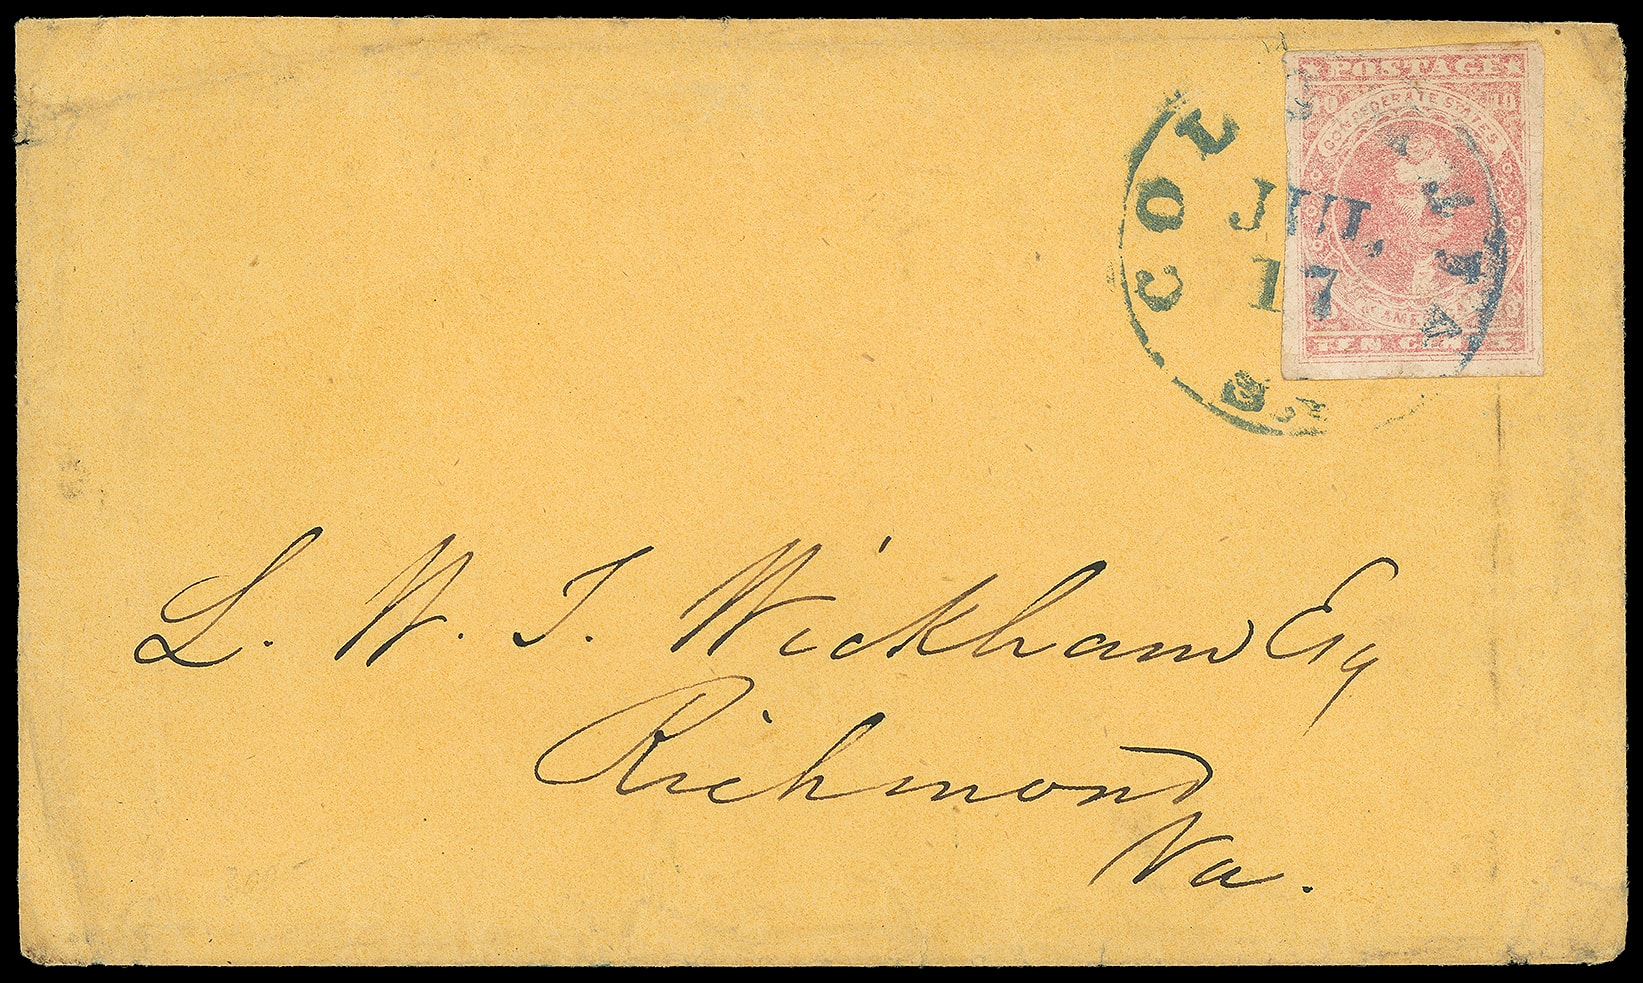 POSTAGE
10 10
CONFEDERATE STATES
OF AMERICA
TEN CENTS
COLUMBIA
JUL,
17
S.
L. W. T. Wickham Esq
Richmond
Va.